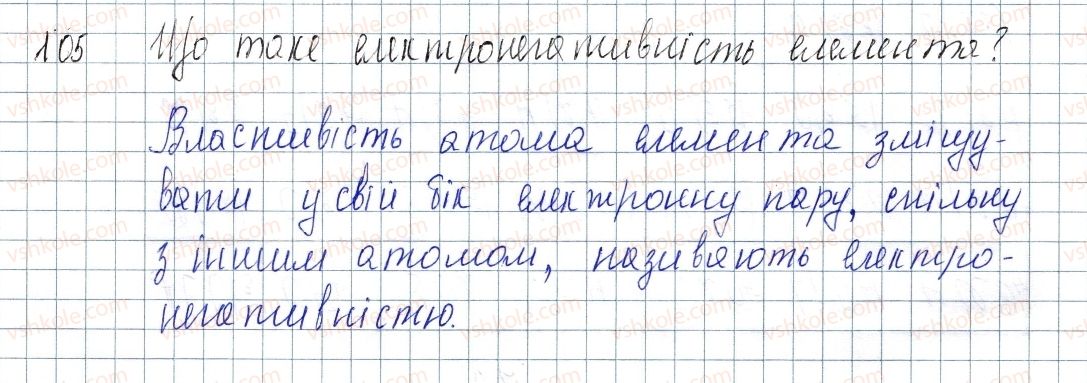 105 Що таке електронегативність елемента?
Властивість атома елемента зміщу-
вати у свій бік електронну пару, спільну
з іншим атомом, називають електро-
негативністю.